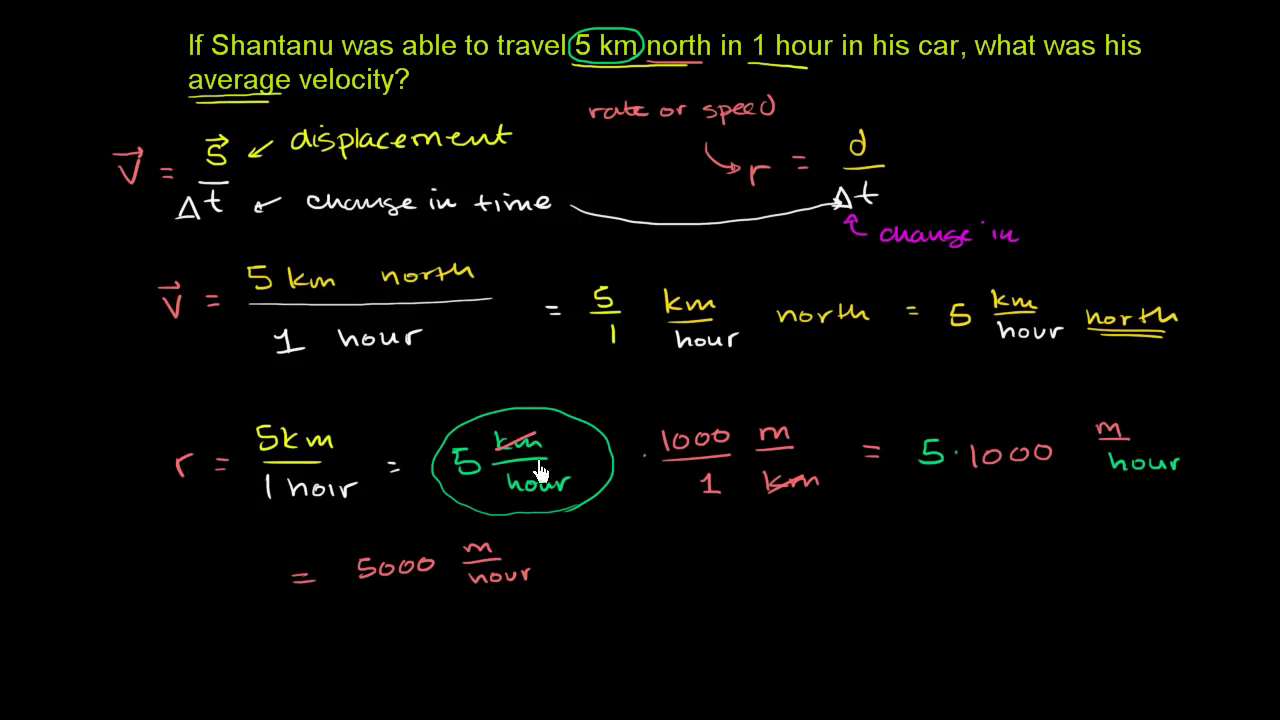 If Shantanu was able to travel 5 km north in 1 hour in his car, what was his
average velocity?
rate or speed
v⃗ = s⃗ / Δt ← displacement
r = d / Δt
← change in time
change in
v⃗ = 5 km north / 1 hour = 5/1 km/hour north = 5 km/hour north
r = 5km / 1 hoir = 5 km/hour · 1000/1 m/km = 5 · 1000 m/hour
= 5000 m/hour